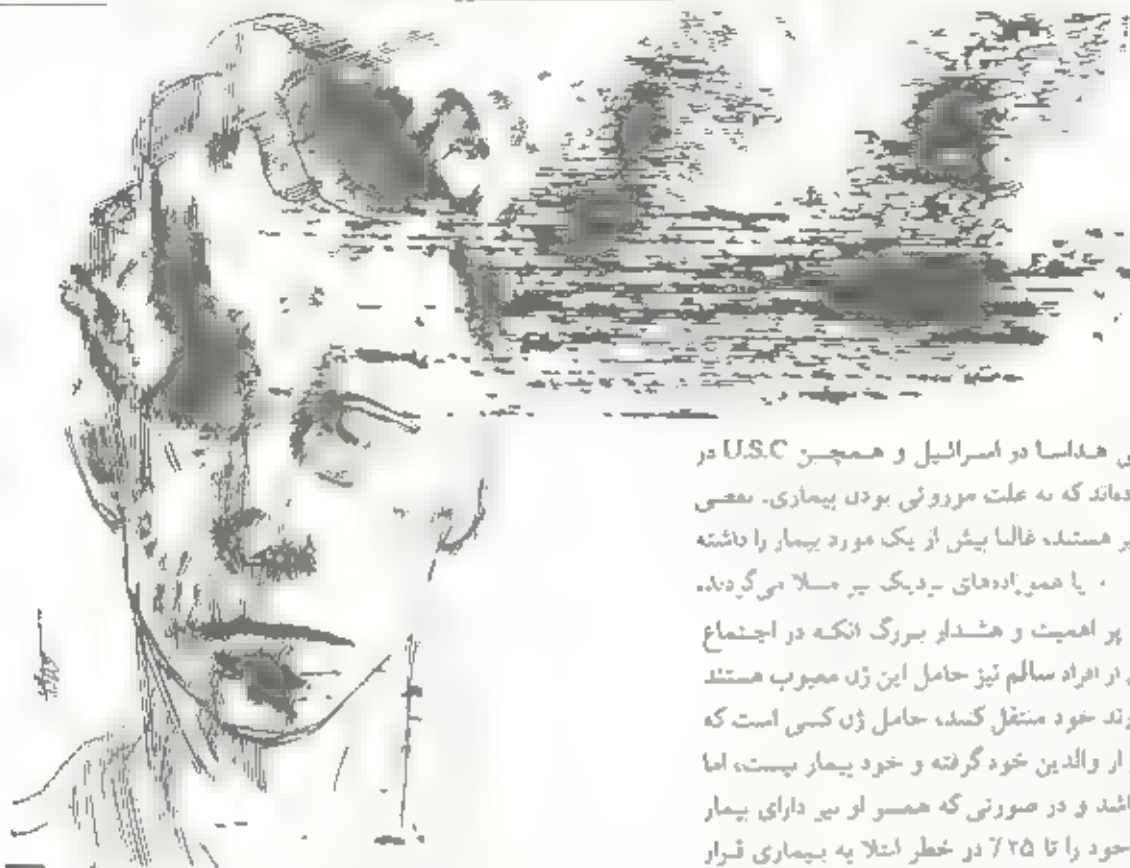 هداسا در اسرائیل و همچنین U.S.C در
که به علت موروثی بودن بیماری، بعضی
هستند، غالبا بیش از یک مورد بیمار را داشته
یا عموزاده‌های نزدیک نیز مبتلا می‌گردند.
پر اهمیت و هشدار بزرگ آنکه در اجتماع
از افراد سالم نیز حامل این ژن معیوب هستند
خود منتقل کنند، حامل ژن کسی است که
از والدین خود گرفته و خود بیمار نیست، اما
و در صورتی که همسر او نیز دارای بیمار
خود را تا ۲۵٪ در خطر ابتلا به بیماری قرار